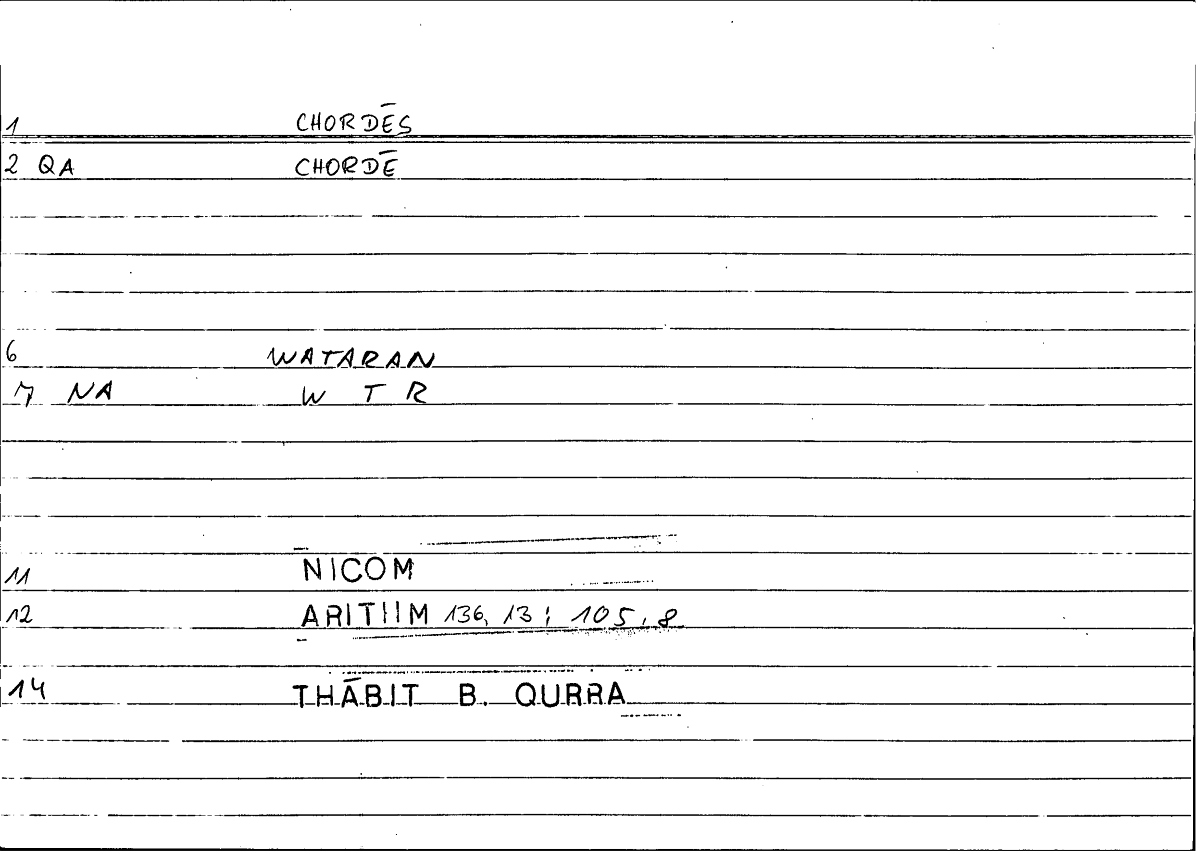 1 CHORDĒS
2 QA CHORDĒ
6 WATARAN
7 NA W T R
11 NICOM
12 ARITIIM 136, 13 ; 105, 8
14 THĀBIT B. QURRA